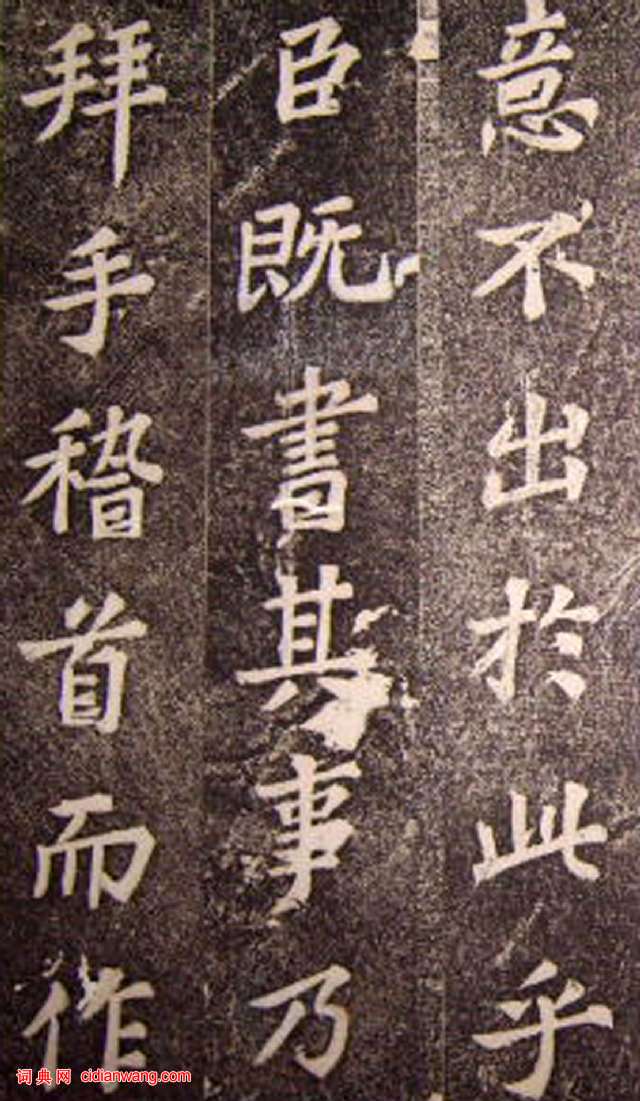 意不出於此乎
臣既書其事乃
拜手稽首而作
词典网 cidianwang.com